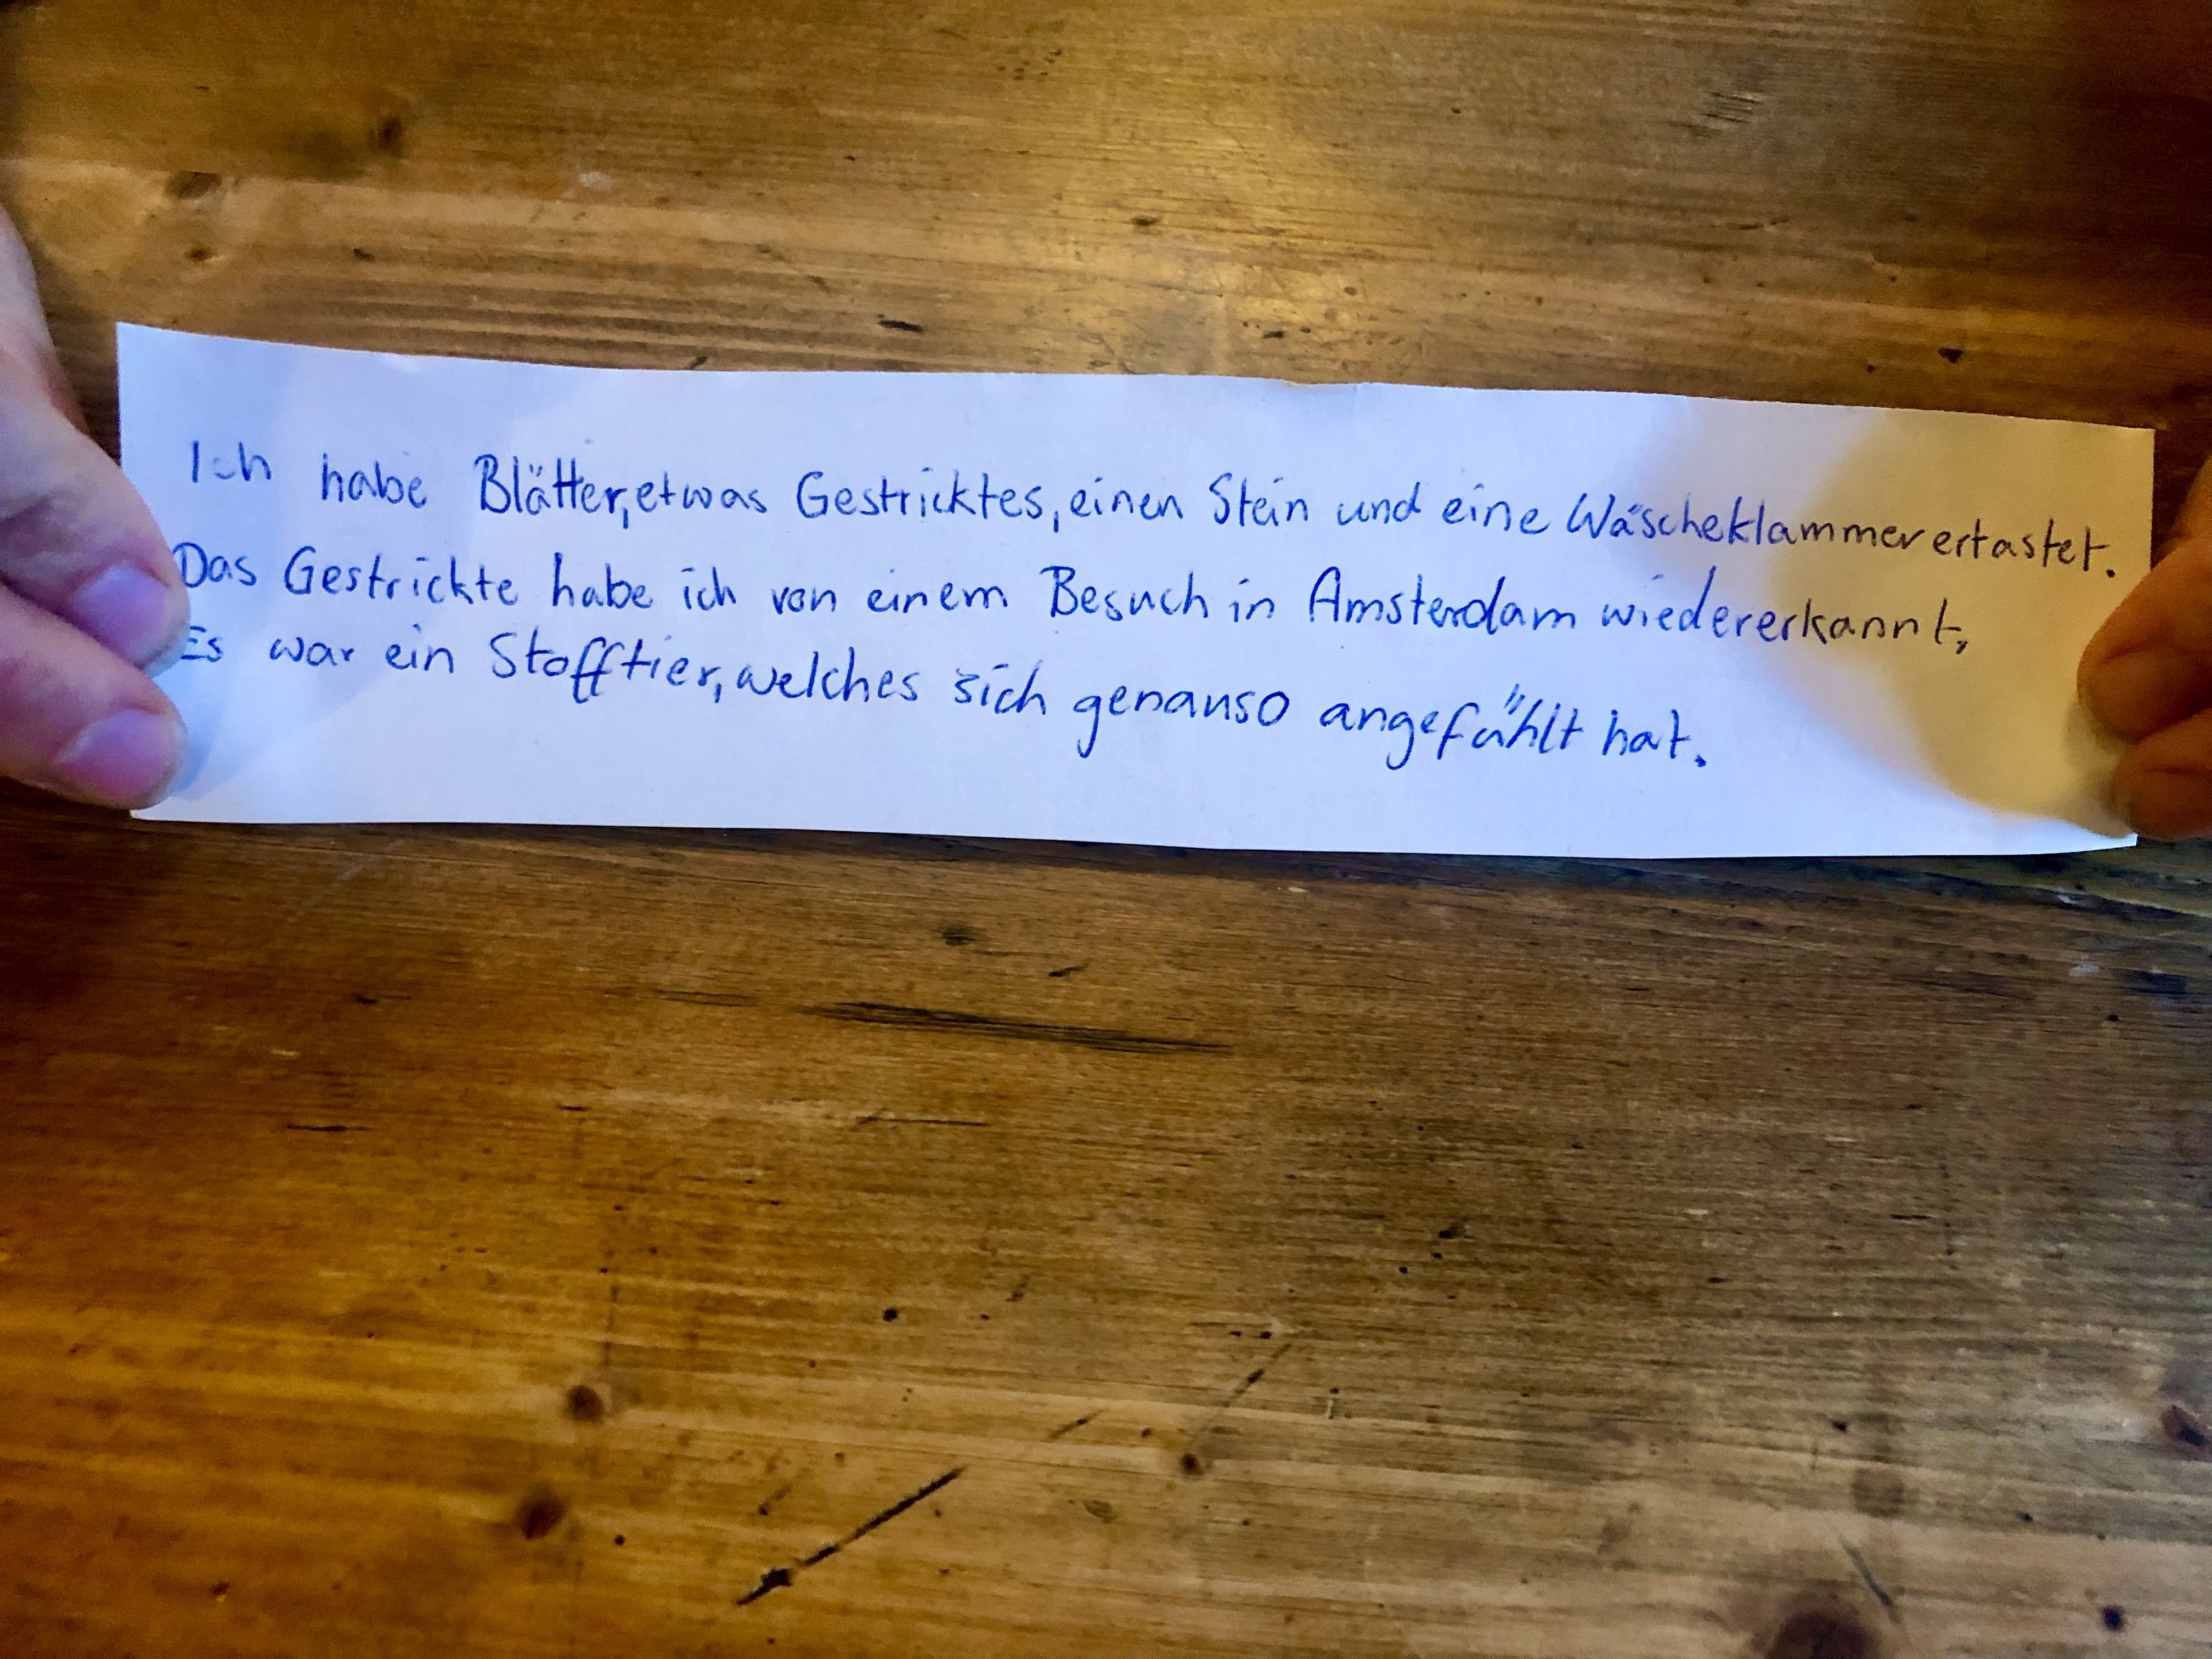 Ich habe Blätter, etwas Gestricktes, einen Stein und eine Wäscheklammer ertastet.
Das Gestrickte habe ich von einem Besuch in Amsterdam wiedererkannt,
Es war ein Stofftier, welches sich genauso angefühlt hat.